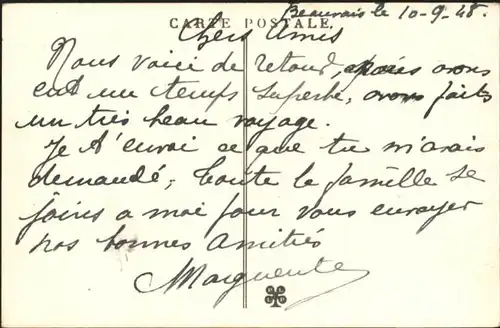 Beauvais le 10-9-48.
CARTE POSTALE
Chers Amis
Nous voici de retour, avons
eut un temps superbe, avons faits
un très beau voyage.
Je t'envoi ce que tu m'avais
demandé, toute la famille se
joins a moi pour vous envoyer
nos bonnes amitiés
Marguerite